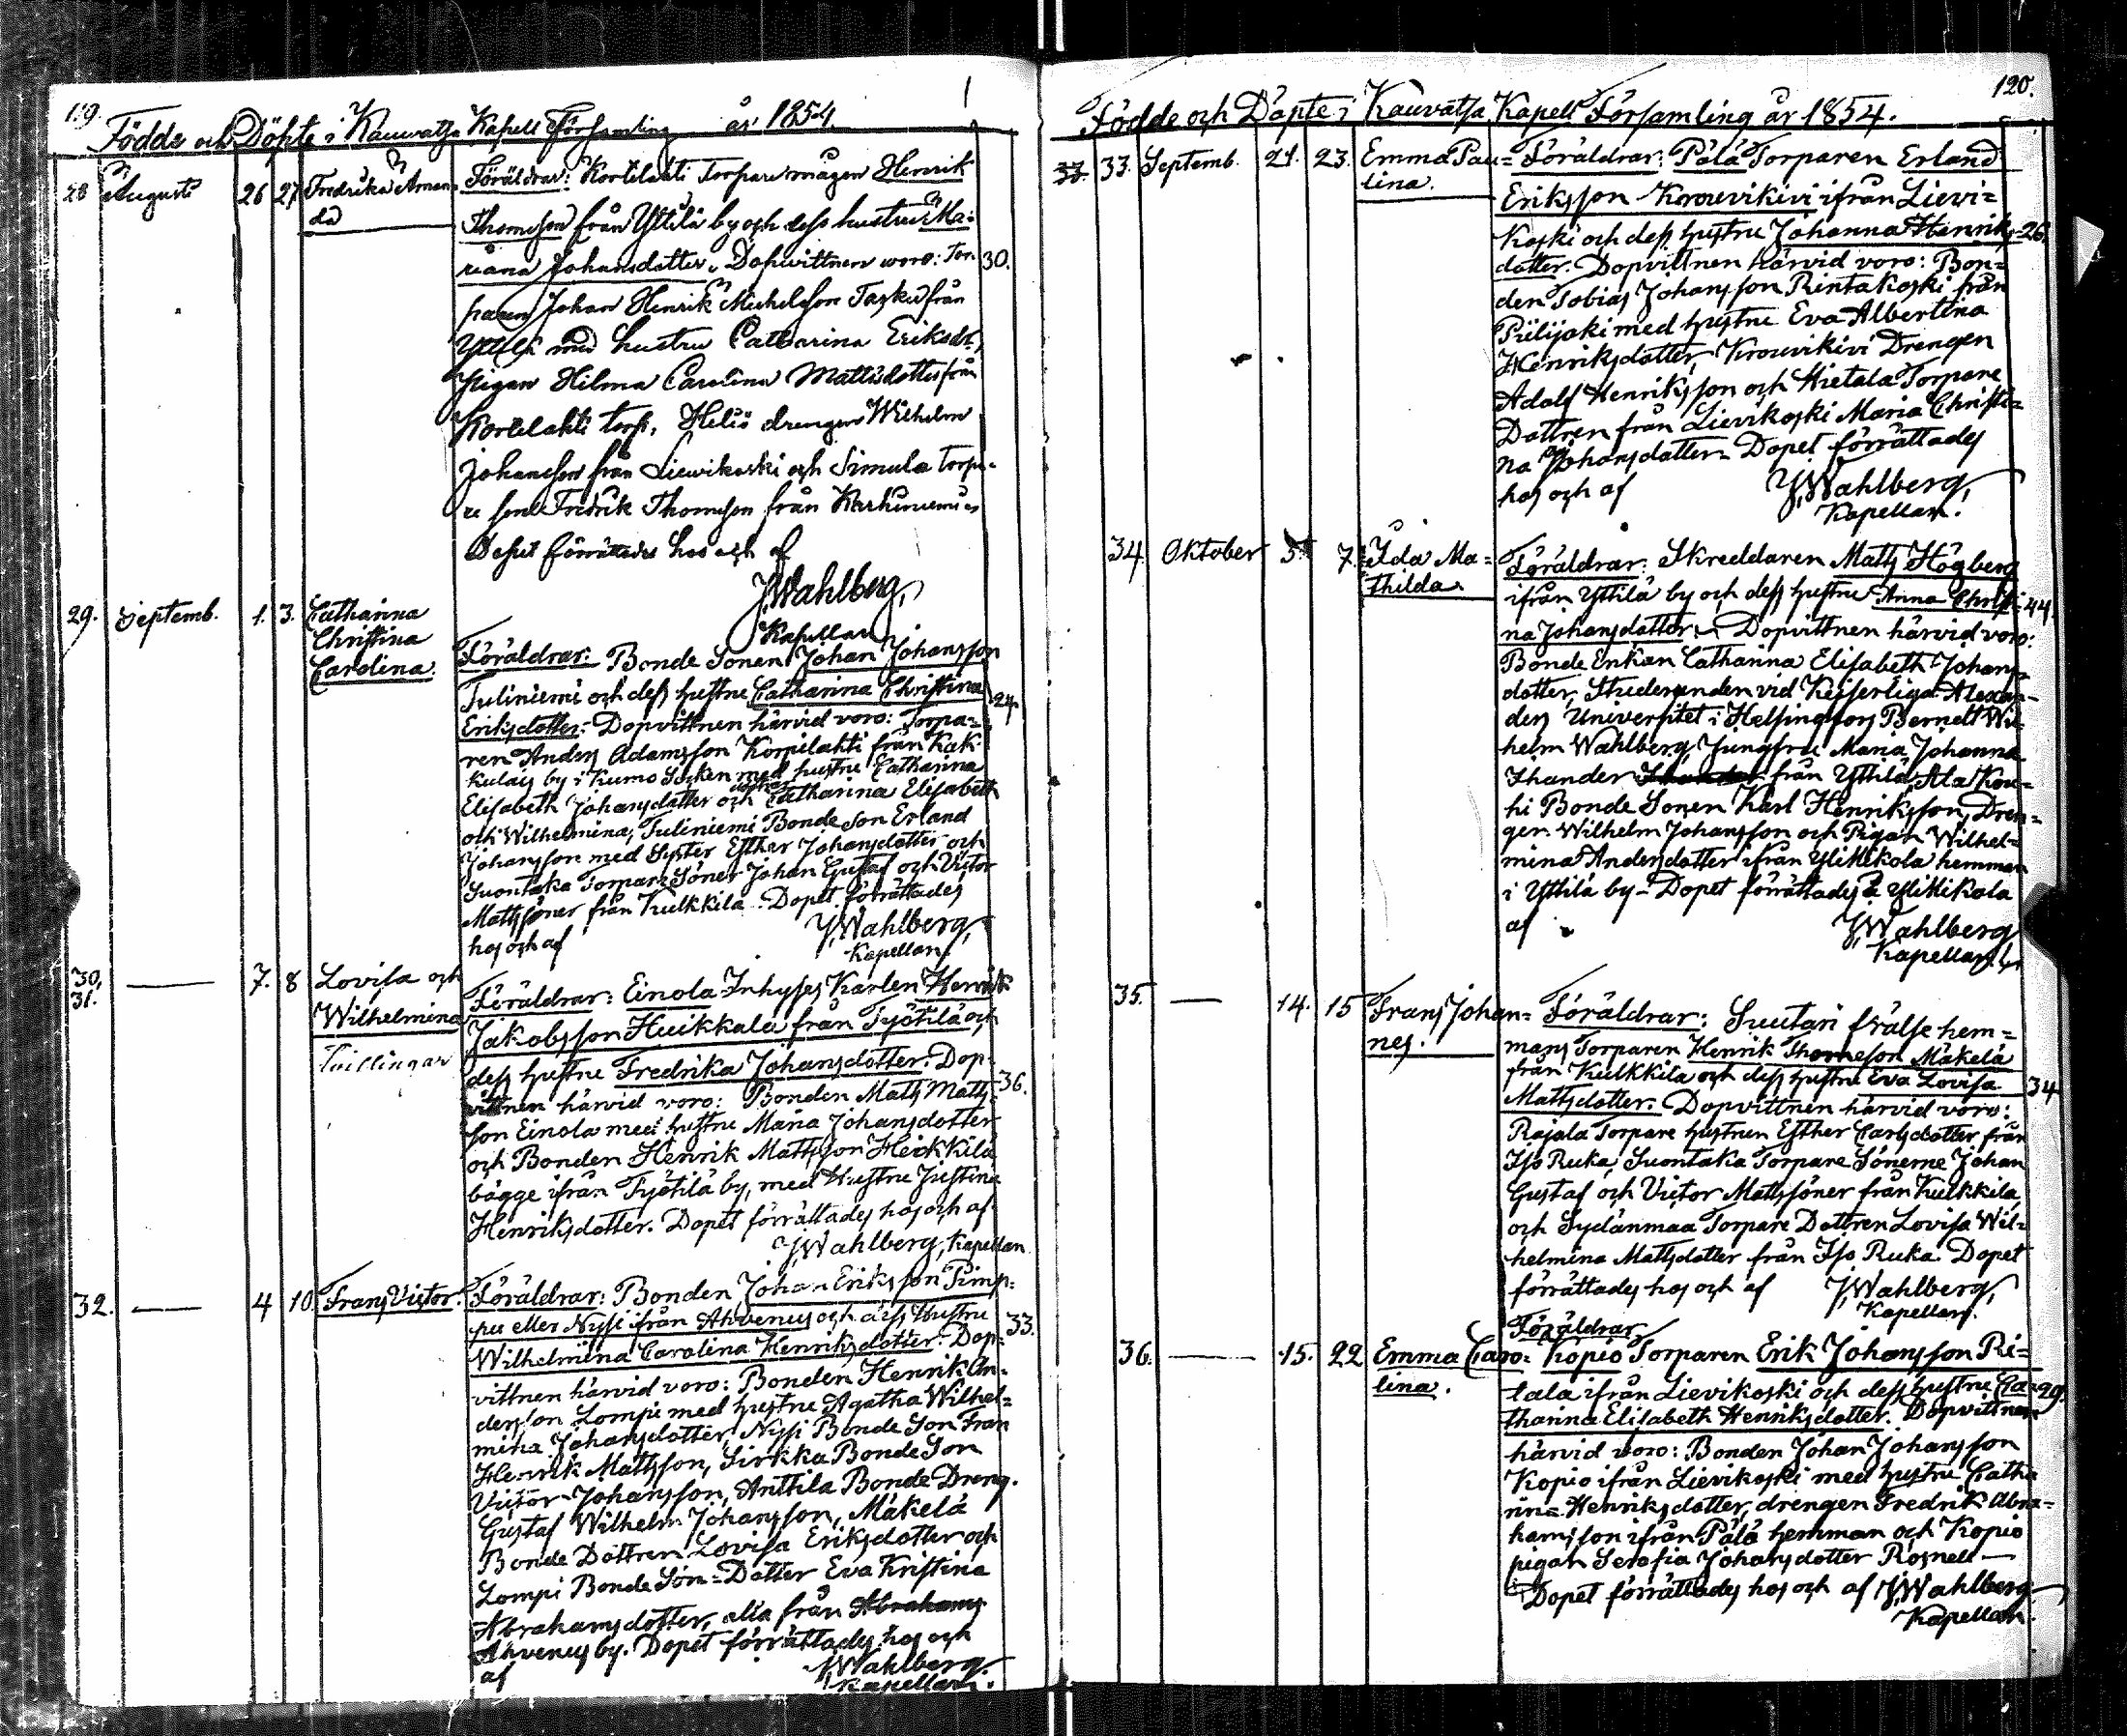 119.
Födde och Döpte i Kauvatsa Kapell Församling år 1854.
28 Augusti 26 27 Fredrika Aman-
da
Föräldrar: Korkelahti Torpare mågen Henrik
Thomsson från Yttilä by och dess hustru Ma-
riana Johansdotter. Dopwittnen woro: Tor- 30.
paren Johan Henrik Michelsson Tasku från
Yttilä med hustru Catharina Eriksdr,
Pigan Hilma Carolina Mattsdotter från
Korkelahti torp, Heliö drengen Wilhelm
Johansson från Liewikoski och Simula Torpa-
re Son Fredrik Thomsson från Karhiniemi
Dopet förrättades hos och af
J. Wahlberg,
Kapellan
29. Septemb. 1. 3. Catharina
Christina
Carolina.
Föräldrar: Bonde Sonen Johan Johansson
Tuliniemi och dess hustru Catharina Christina 24.
Eriksdotter. Dopvittnen härvid voro: Torpa-
ren Anders Adamsson Korpilahti från Kak-
kulais by i Kumo Socken med hustru Catharina
Elisabeth Johansdotter och döttrar Catharina Elisabeth
och Wilhelmina, Tuliniemi Bonde Son Erland
Johansson med Syster Esther Johansdotter och
Suontaka Torpare Söner Johan Gustaf och Victor
Matts söner från Kulkkila. Dopet förrättades
hos och af J. Wahlberg,
Kapellan.
30, 31. — 7. 8 Lovisa och
Wilhelmina
Tvillingar
Föräldrar: Einola Inhyses Karlen Henrik
Jakobsson Huikkala från Työtilä och
dess hustru Fredrika Johansdotter. Dop- 36.
vittnen härvid voro: Bonden Matts Matts-
son Einola med hustru Maria Johansdotter
och Bonden Henrik Mattsson Heikkilä
bägge ifrån Työtilä by, med Hustru Justina
Henriksdotter. Dopet förrättades hos och af
J. Wahlberg, Kapellan
32. — 4 10. Frans Victor.
Föräldrar: Bonden Johan Eriksson Pimp-
pu eller Nyssi ifrån Ahvenus och dess Hustru 33.
Wilhelmina Carolina Henriksdotter. Dop-
vittnen härvid voro: Bonden Henrik An-
dersson Lompi med hustru Agatha Wilhel-
mina Johansdotter, Nyssi Bonde Son Frans
Henrik Mattsson, Sirkka Bonde Son
Victor Johansson, Anttila Bonde Dreng.
Gustaf Wilhelm Johansson, Mäkelä
Bonde Dottren Lovisa Eriksdotter och
Lompi Bonde Son-Dotter Eva Kristina
Abrahamsdotter, alla från Abrahams
Ahvenus by. Dopet förrättades hos och
af J. Wahlberg.
Kapellan.
120.
Födde och Döpte i Kauvatsa Kapell Församling år 1854.
33. 33. Septemb. 21. 23. Emma Pau-
lina.
Föräldrar: Pälä Torparen Erland
Eriksson Korvenkivi ifrån Lievi-
koski och dess hustru Johanna Henriks- 26.
dotter. Dopvittnen härvid voro: Bon-
den Tobias Johansson Rintakoski från
Piilijoki med hustru Eva Albertina
Henriksdotter, Drengen
Adolf Henriksson och Hietala Torpare
Dottren från Lievikoski Maria Christi-
na Johansdotter. Dopet förrättades
hos och af J. Wahlberg,
Kapellan.
34. Oktober 5. 7. Ida Ma-
thilda.
Föräldrar: Skreddaren Matts Högberg
ifrån Yttilä by och dess hustru Anna Christi- 44.
na Johansdotter. Dopvittnen härvid voro:
Bonde Enkan Catharina Elisabeth Johans-
dotter, Studeranden vid Kejserliga Alexan-
ders Universitet i Helsingfors Bernelt Wil-
helm Wahlberg, Jungfru Maria Johanna
Ihander från Yttilä, Ala Kou-
hi Bonde Sonen Karl Henriksson, Dren-
gen Wilhelm Johansson och Pigan Wilhel-
mina Andersdotter ifrån Yli Mikola hemman
i Yttilä by. Dopet förrättades å Yli Mikola
af J. Wahlberg
Kapellan.
35. — 14. 15 Frans Johan-
nes.
Föräldrar: Suutari frälse hem-
mans Torparen Henrik Thomesson Mäkelä
från Kulkkila och dess hustru Eva Lovisa 34
Mattsdotter. Dopvittnen härvid voro:
Rajala Torpare hustrun Esther Carlsdotter från
Iso Ruka, Suontaka Torpare Sönerne Johan
Gustaf och Victor Matts söner från Kulkkila,
och Sydänmaa Torpare Dottren Lovisa Wil-
helmina Mattsdotter från Iso Ruka. Dopet
förrättades hos och af J. Wahlberg,
Kapellan.
36. — 15. 22 Emma Caro-
lina.
Föräldrar
Kopio Torparen Erik Johansson Ri-
tala ifrån Lievikoski och dess hustru Ca- 29.
tharina Elisabeth Henriksdotter. Dopvittnen
härvid voro: Bonden Johan Johansson
Kopio ifrån Lievikoski med hustru Catha-
rina Henriksdotter, drengen Fredrik Abra-
hamsson ifrån Pälä hemman och Kopio
pigan Serafia Johansdotter Rosnell —
Dopet förrättades hos och af J. Wahlberg
Kapellan.